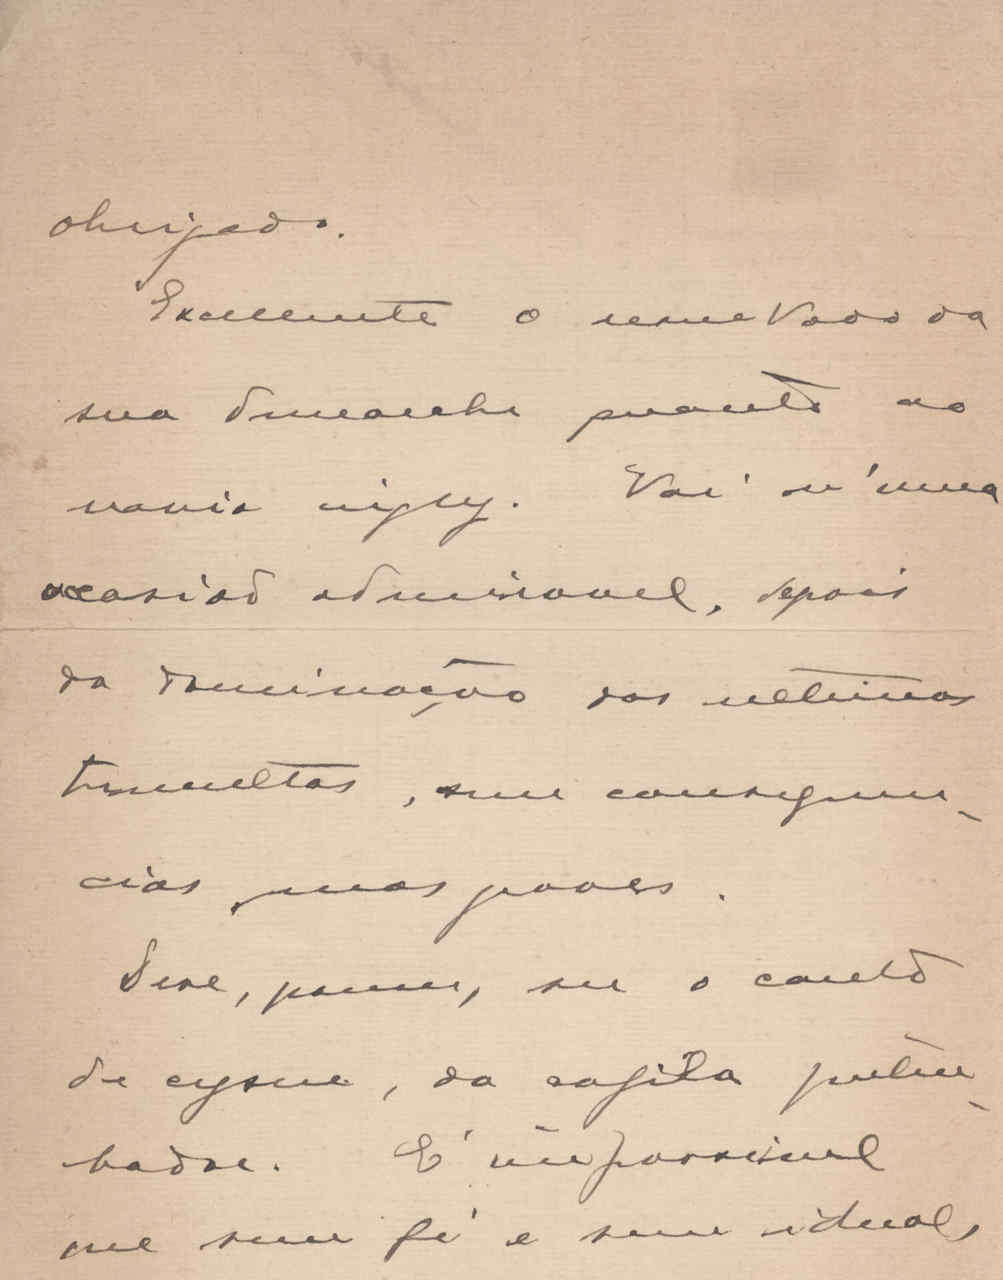 obrigado.
Excellente o resultado da
sua démarche quanto ao
navio inglez. Vai n'uma
occasião admiravel, depois
da dominação dos ultimos
tumultos, sem consequen-
cias graves.
Será, porem, o canto
de cysne, da
badora. É impossivel
que sem fé e sem ideaes,